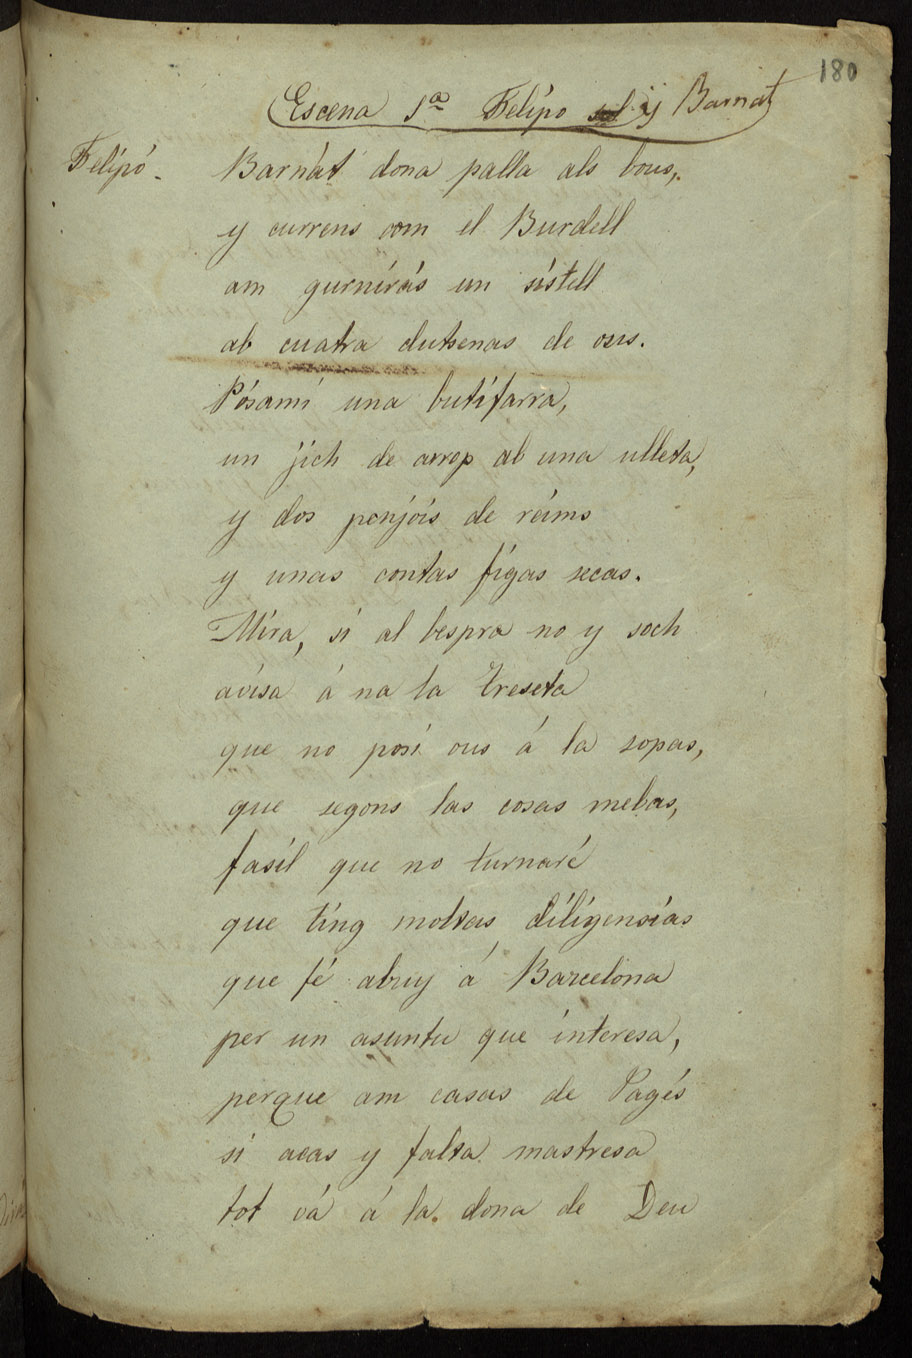 180
Escena 1ª Felipo y Barnat
Felipó. Barnat dona palla als bous,
y currens com el Burdell
am gurnirás un sistell
ab cuatra dutsenas de ous.
Pósami una butifarra,
un jich de arrop ab una ulleta,
y dos penjois de reims
y unas contas figas secas.
Mira, si al bespra no y soch
avisa á na la Treseta
que no posi ous á la sopas,
que segons las cosas mebas,
fasil que no turnaré
que ting moltas diligensias
que fé abuy á Barcelona
per un asuntu que interesa,
perque am casas de Pagés
si acas y falta mastresa
tot vá á la dona de Deu